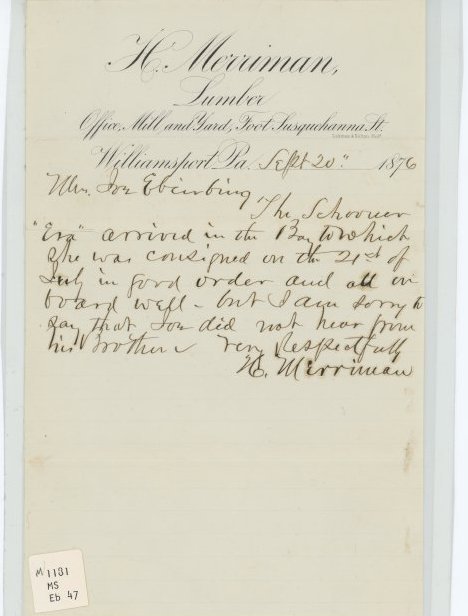 H. Merriman,
Lumber
Office, Mill and Yard, Foot Susquehanna St.
Williamsport, Pa. Sept 20" 1876
Mrs. Joe Ebeirbing
The Schooner
"Era" arrived in the Bay to which
she was consigned on the 21st of
July in good order and all on
board well - but I am sorry to
say that Joe did not hear from
his Brother Very Respectfully
H. Merriman
M 1181
MS
Eb 47